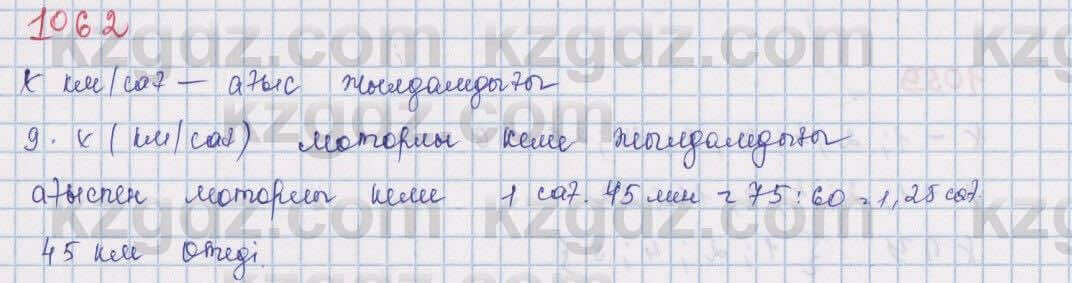 1062
x км/сағ — ағыс жылдамдығы
9 · x (км/сағ) моторлы кеме жылдамдығы
ағыспен моторлы кеме 1 сағ. 45 мин = 75 : 60 = 1,25 сағ.
45 км өтеді.
kzgdz.com kzgdz.com kzgdz
kzgdz.com
kzgdz.com kzgdz.com kzgdz